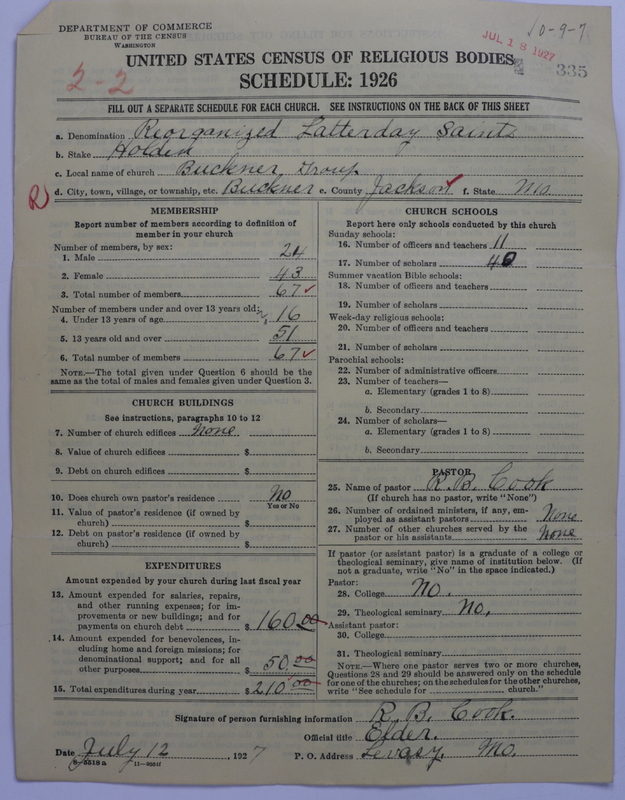 DEPARTMENT OF COMMERCE
BUREAU OF THE CENSUS
WASHINGTON
10-9-7
JUL 18 1927
335
2-2
UNITED STATES CENSUS OF RELIGIOUS BODIES
SCHEDULE: 1926
FILL OUT A SEPARATE SCHEDULE FOR EACH CHURCH. SEE INSTRUCTIONS ON THE BACK OF THIS SHEET
a. Denomination Reorganized Latterday Saints
b. Stake Holden
c. Local name of church Buckner Group
d. City, town, village, or township, etc. Buckner e. County Jackson f. State Mo.
MEMBERSHIP
Report number of members according to definition of
member in your church
Number of members, by sex:
1. Male 24
2. Female 43
3. Total number of members 67
Number of members under and over 13 years old:
4. Under 13 years of age 16
5. 13 years old and over 51
6. Total number of members 67
NOTE.—The total given under Question 6 should be
same as the total of males and females given under Question 3.
CHURCH BUILDINGS
See instructions, paragraphs 10 to 12
7. Number of church edifices None
8. Value of church edifices $
9. Debt on church edifices $
10. Does church own pastor's residence No
Yes or No
11. Value of pastor's residence (if owned by
church) $
12. Debt on pastor's residence (if owned by
church) $
EXPENDITURES
Amount expended by your church during last fiscal year
13. Amount expended for salaries, repairs,
and other running expenses; for im-
provements or new buildings; and for
payments on church debt $ 160.00
14. Amount expended for benevolences, in-
cluding home and foreign missions; for
denominational support; and for all
other purposes $ 50.00
15. Total expenditures during year $ 210.00
CHURCH SCHOOLS
Report here only schools conducted by this church
Sunday schools:
16. Number of officers and teachers 11
17. Number of scholars 40
Summer vacation Bible schools:
18. Number of officers and teachers
19. Number of scholars
Week-day religious schools:
20. Number of officers and teachers
21. Number of scholars
Parochial schools:
22. Number of administrative officers
23. Number of teachers—
a. Elementary (grades 1 to 8)
b. Secondary
24. Number of scholars—
a. Elementary (grades 1 to 8)
b. Secondary
PASTOR
25. Name of pastor R. B. Cook
(If church has no pastor, write "None")
26. Number of ordained ministers, if any, em-
ployed as assistant pastors None
27. Number of other churches served by the
pastor or his assistants None
If pastor (or assistant pastor) is a graduate of a college or
theological seminary, give name of institution below. (If
not a graduate, write "No" in the space indicated.)
Pastor:
28. College No.
29. Theological seminary No,
Assistant pastor:
30. College
31. Theological seminary
NOTE.—Where one pastor serves two or more churches,
Questions 28 and 29 should be answered only on the schedule
for one of the churches; on the schedules for the other churches,
write "See schedule for church."
Signature of person furnishing information R. B. Cook.
Official title Elder.
Date July 12, 1927 P. O. Address Levasy, Mo.
8-5318 a